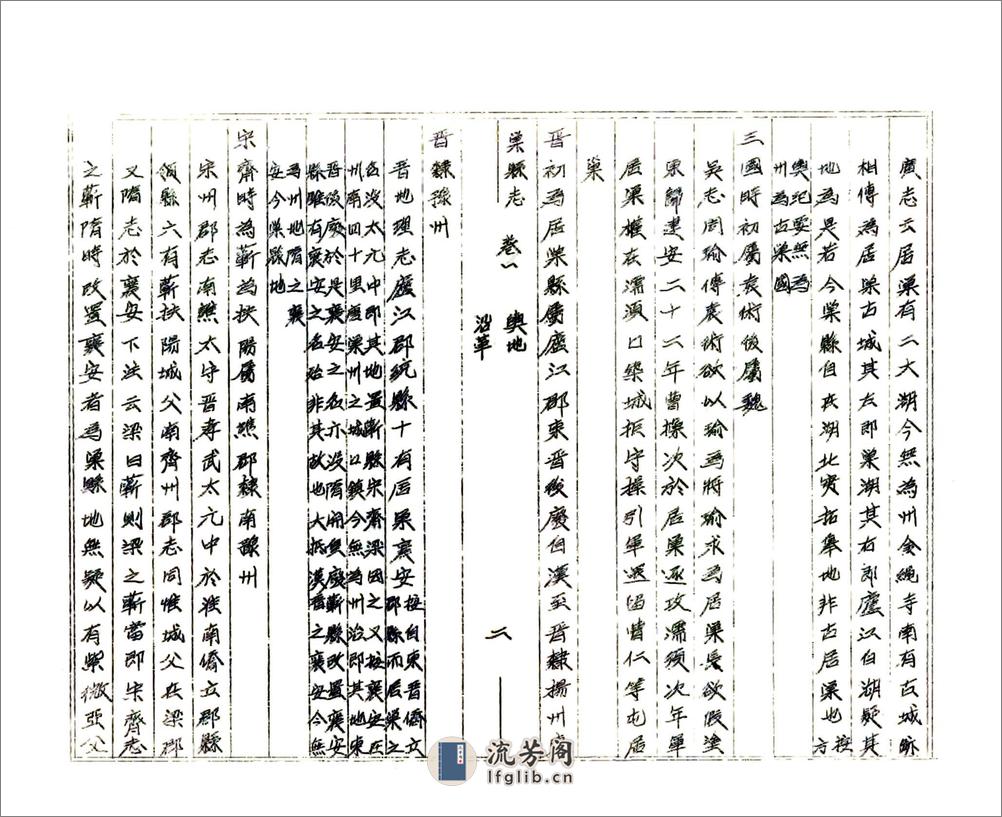 廣志云居巢有二大湖今無為州金繩寺南有古城
相傳為居巢古城其左即巢湖其右即廬江白湖疑其
地為是若今巢縣自在湖北實拓皋地非古居巢也方按
輿紀要無為
州為古巢國
三國時初屬袁術後屬魏
吳志周瑜傳袁術欲以瑜為將瑜求為居巢長欲假塗
東歸建安二十二年曹操次於居巢逐攻濡須次年軍
居巢權在濡須口築城拒守操引軍還留曹仁等屯居
巢
晋初為居巢縣屬廬江郡東晋後廢自漢至晋隸揚州
巢縣志 卷一 輿地 沿革 二
晋隸豫州
晋地理志廬江郡統縣十有居巢襄安按自東晋僑立
郡縣而后巢之
名沒太元中即其地置蘄縣宋齊梁因之又按襄安在
州南四十里唐巢州之城口鎮今無為州治即其地東
晋後廢於是襄安之名亦沒隋開皇廢蘄縣改置襄安
縣雖有襄安之名殆非其故地大抵漢晋之襄安今無
為州地隋之襄
安今巢縣地
宋齊時為蘄為扶陽屬南譙郡隸南豫州
宋州郡志南譙太守晋孝武太元中於淮南僑立郡縣
領縣六有蘄扶陽城父南齊州郡志同惟城父在梁郡
又隋志於襄安下注云梁曰蘄則梁之蘄當即宋齊志
之蘄隋時改置襄安者為巢縣地無疑以有紫微亞父
流芳阁
lfglib.cn